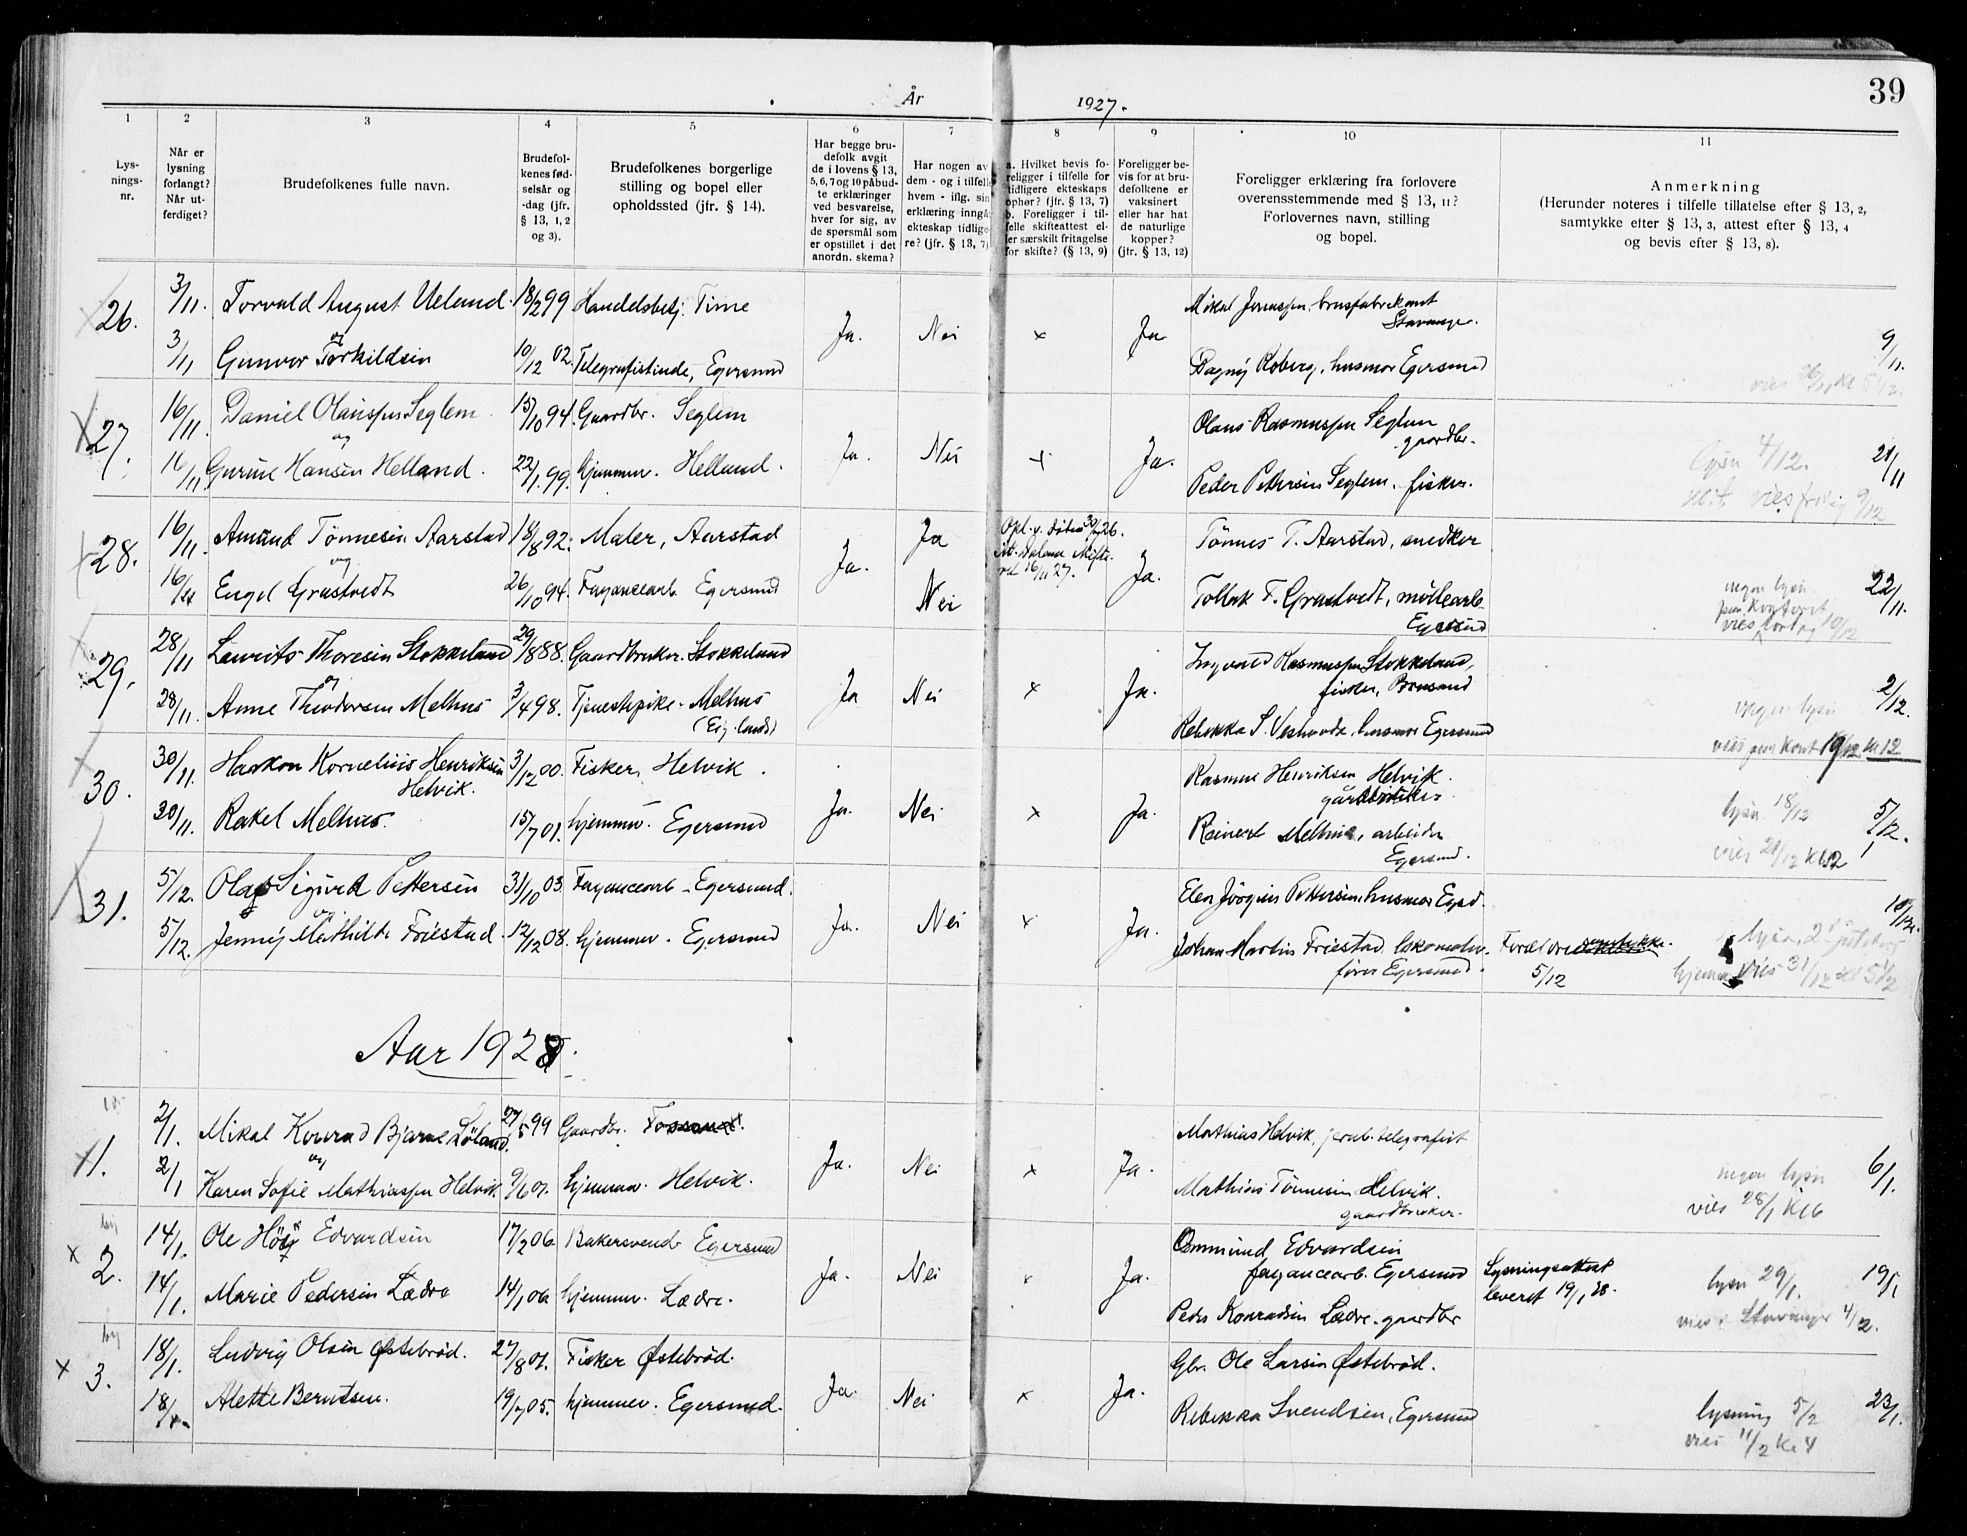 39
År 1927.
1 2 3 4 5 6 7 8 9 10 11
Lysningsnr.
Når er lysning forlangt? Når utferdiget?
Brudefolkenes fulle navn.
Brudefolkenes fødselsår og -dag (jfr. § 13, 1, 2 og 3).
Brudefolkenes borgerlige stilling og bopel eller opholdssted (jfr. § 14).
Har begge brudefolk avgit de i lovens § 13, 5, 6, 7 og 10 påbudte erklæringer ved besvarelse, hver for sig, av de spørsmål som er opstillet i det anordn. skema?
Har nogen av dem - og i tilfelle hvem - iflg. sin erklæring inngå ekteskap tidligere? (jfr. § 13, 7)
a. Hvilket bevis foreligger i tilfelle for tidligere ekteskaps ophør? (jfr. § 13, 7) b. Foreligger i tilfelle skifteattest eller særskilt fritagelse for skifte? (§ 13, 9)
Foreligger bevis for at brudefolkene er vaksinert eller har hat de naturlige kopper? (jfr. § 13, 12)
Foreligger erklæring fra forlovere overensstemmende med § 13, 11? Forlovernes navn, stilling og bopel.
Anmerkning
(Herunder noteres i tilfelle tillatelse efter § 13, 2, samtykke efter § 13, 3, attest efter § 13, 4 og bevis efter § 13, 8).
26. 3/11. Torvald August Ueland. 18/2 99 Handelsbetj. Time Ja. Nei x Ja Mikal Jonassen, brusfabrikant Stavanger. 9/11.
og
3/11 Gunvor Torkildsen 10/12 02. Telegrafistinde, Egersund Dagny Roberg, husmor Egersund
27. 16/11. Daniel Olaussen Seglem. 15/10 94. Gaardbr. Seglem Ja. Nei x Ja. Olaus Rasmussen Seglem gaardbr. lysn 4/12. 21/11
og
16/11 Gurine Hansen Helland. 22/1 99. hjemmev. Helland. Peder Pettersen Seglem, fisker. vies fredag 9/12
28. 16/11. Amund Tønnesen Aarstad 18/8 92. Maler, Aarstad Ja. Ja Ja. Tønnes T. Aarstad, snedker 22/11.
og
16/11 Engel Grastvedt 26/10 94. Fayancearb. Egersund Nei Tollak F. Grastvedt, möllearb. Egersund
ingen lysn
vies lørdag 10/12
29. 28/11 Laurits Thoresen Stokkeland 29/8 88. Gaardbruker. Stokkeland Ja Nei x Ja. Ingvald Rasmussen Stokkeland, fisker, Brusand 2/12.
og
28/11. Anne Theodorsen Melhus 3/4 98. Tjenestepike - Melhus (Eig. lands) Rebekka S. Veshovde, husmor Egersund
ingen lysn
vies paa kont 19/12 kl 12
30. 30/11. Haakon Kornelius Henriksen Helvik. 3/12 00. Fisker, Helvik. Ja. Nei x Ja. Rasmus Henriksen Helvik. gårdbruker lysn. 18/12 5/12.
30/11. Rakel Melhus. 15/7 01. hjemmev. Egersund Reinert Melhus, arbeider Egersund. vies 21/12 Kl 12
31. 5/12. Olaf Sigurd Pettersen 31/10 03 Fayancearb - Egersund. Ja. Nei x Ja. Elen Jörgine Pettersen, husmor Egsd. 10/12.
og
5/12. Jenny Mathilde Friestad. 12/12 08. hjemmev. Egersund Johan Martin Friestad, lokomotivfører Egersund. Forældre samtykke. 5/12
hjemme vies 31/12 kl 5 1/2
Aar 1928.
1. 2/1. Mikal Konrad Bjarne Løland. 27/5 99 Gaardbr. Ja. Nei x Ja. Mathias Helvik, jernb. telegrafist 6/1.
og
2/1 Karen Sofie Mathiassen Helvik 9/6 01. hjemmev. Helvik. Mathias Tønnesen Helvik. gaardbruker. ingen lysn
vies 28/1 Kl 6
2. 14/1. Ole Höy Edvardsen 17/2 06. Bakersvend Egersund Ja. Nei x Ja. Ommund Edvardsen fayancearb. Egersund Lysningsattest leveret 19/1 28. lysn 29/1. 19/1
14/1. Marie Pedersen Lædre 14/1 06 hjemmev. Lædre. Peder Konradsen Lædre. gaardbr vies i Stavanger 4/2.
3. 18/1. Ludvig Olsen Østebrød. 27/8 01. Fisker Østebrød. Ja. Nei x Ja. Gbr. Ole Larsen Østebrød. 23/1.
18/1. Alette Berntsen. 19/7 05. hjemmev. Egersund. Rebekka Svendsen, Egersund lysning 5/2
vies 11/2 Kl 4